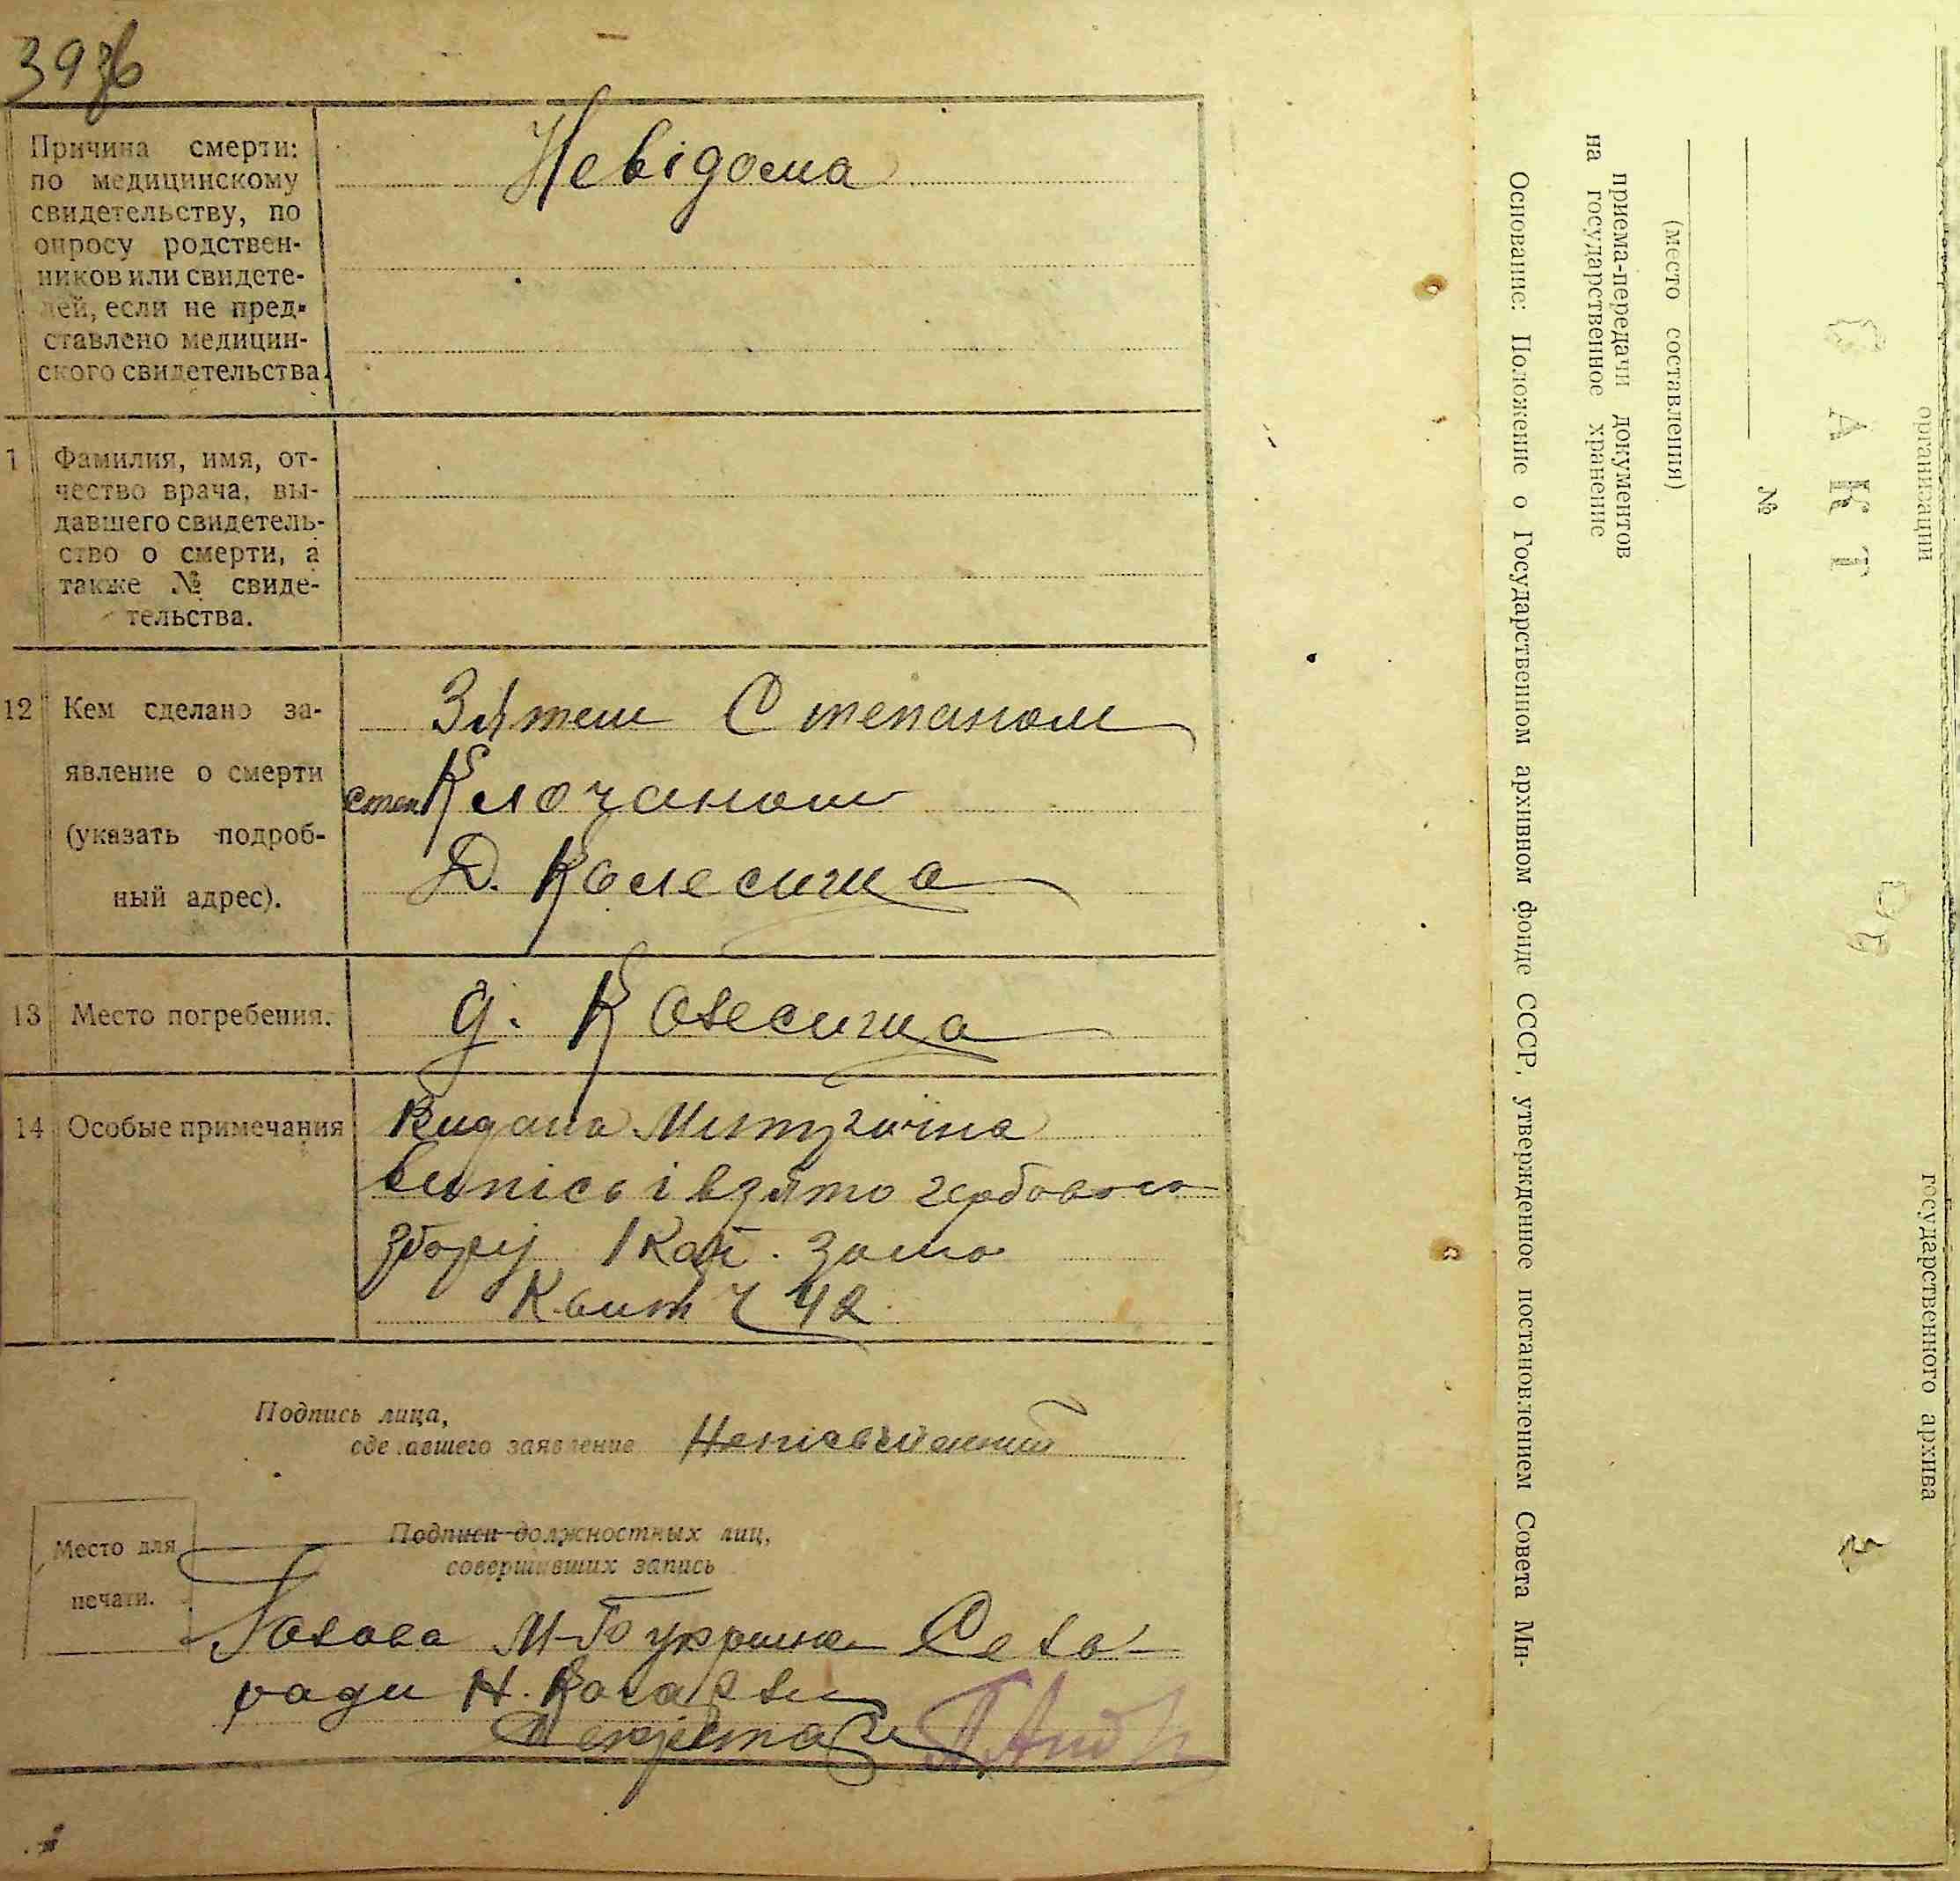 397б
Причина смерти:
по медицинскому
свидетельству, по
опросу родствен-
ников или свидете-
лей, если не пред-
ставлено медицин-
ского свидетельства.
Невідома
1 Фамилия, имя, от-
чество врача, вы-
давшего свидетель-
ство о смерти, а
также № свиде-
тельства.
12 Кем сделано за-
явление о смерти
(указать подроб-
ный адрес).
Зятем Степаном
Клочаном
Д. Колесища
13 Место погребения.
д. Колесища
14 Особые примечания
Видана
випісь і взято гербового
збору 1 кап.
Квит Ч 42
Подпись лица,
сделавшего заявление Неписьменний
Подписи должностных лиц,
совершивших запись
Место для
печати.
Голова Сель-
ради Н.
Секретар
организации
государственного архива
АКТ
№
(место составления)
приема-передачи документов
на государственное хранение
Основание: Положение о Государственном архивном фонде СССР, утвержденное постановлением Совета Ми-